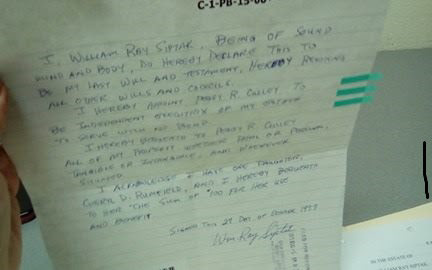 C-1-PB-15-00
I, WILLIAM RAY SIPTAK, BEING OF SOUND
MIND AND BODY, DO HEREBY DECLARE THIS TO
BE MY LAST WILL AND TESTAMENT, HEREBY REVOKING
ALL OTHER WILLS AND CODICILS.
I HEREBY APPOINT PERRY R. CULLEY TO
BE INDEPENDENT EXECUTOR OF MY ESTATE
TO SERVE WITH NO BOND.
I HEREBY BEQUEATH TO PERRY R. CULLEY
ALL OF MY PROPERTY WHETHER REAL OR PERSONAL,
TANGIBLE OR INTANGIBLE, AND WHEREVER
SITUATED.
I ACKNOWLEDGE I HAVE ONE DAUGHTER,
D. AND I HEREBY BEQUEATH
TO HER THE SUM OF $100 FOR HER USE
AND BENEFIT.
SIGNED THIS 29 DAY OF OCTOBER
Wm Ray Siptak
IN THE ESTATE OF
RAY SIPTAK,